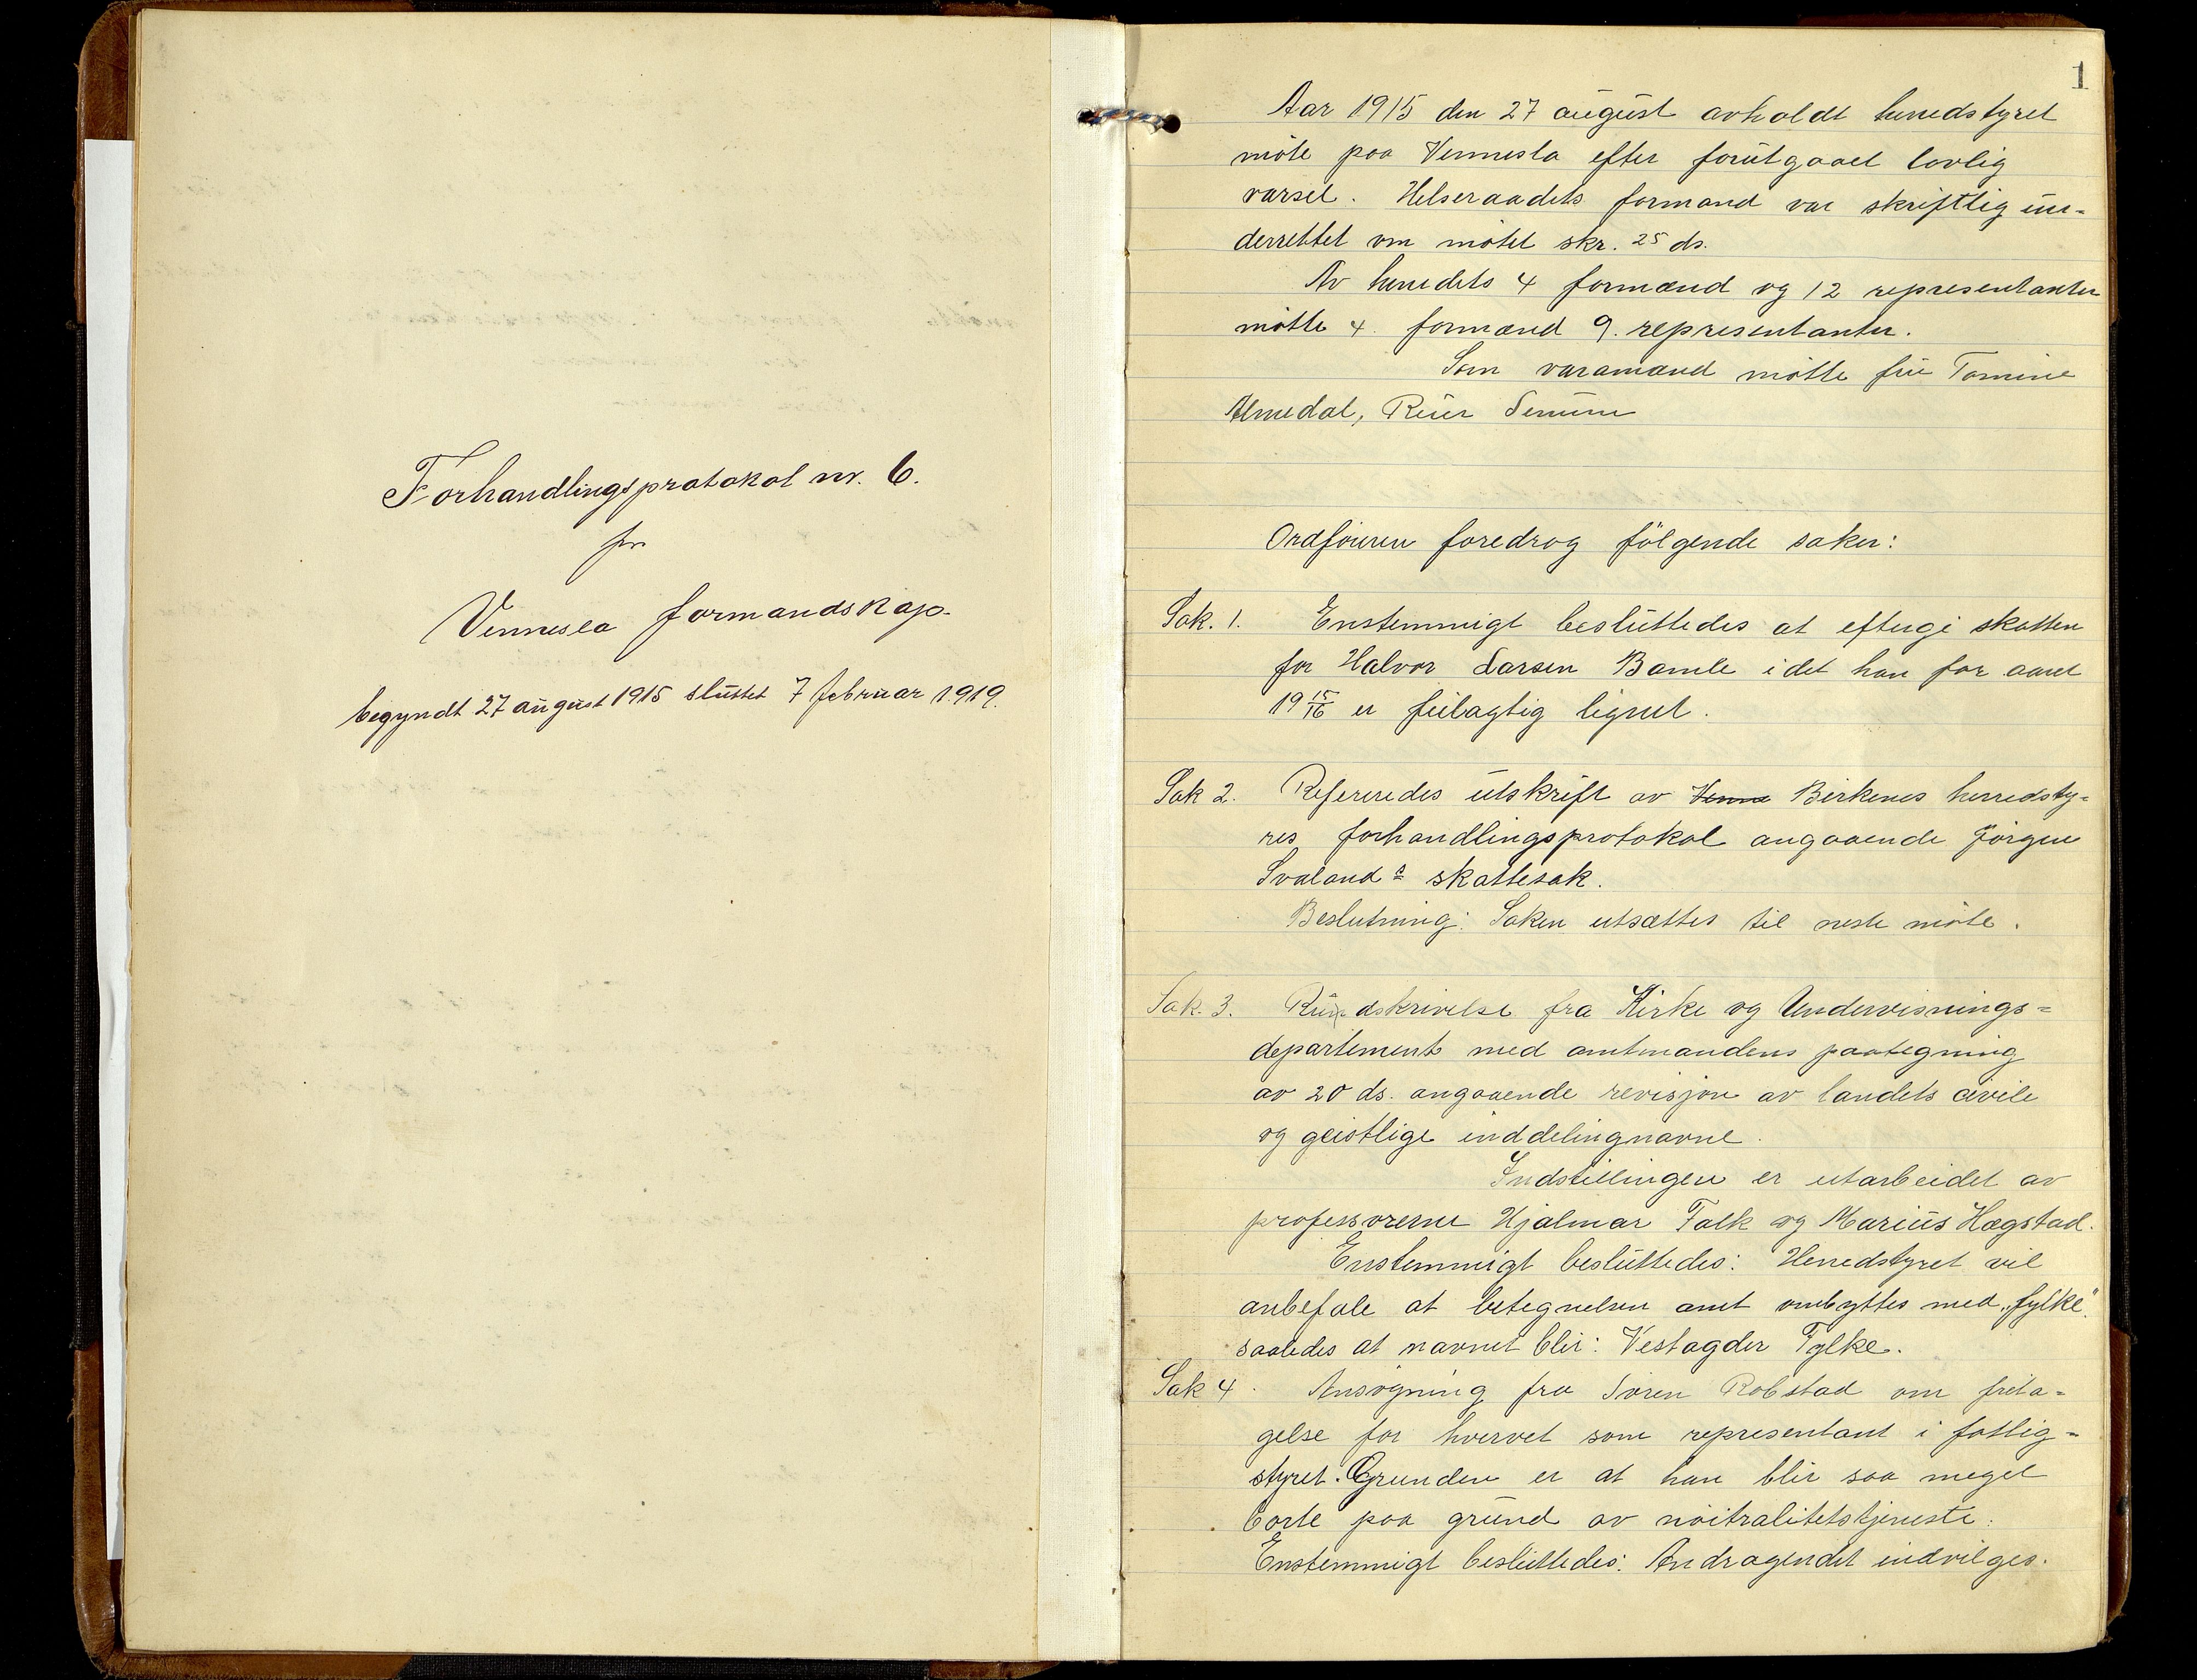 Forhandlingsprotokol nr. 6.
for
Vennesla formandskap.
begyndt 27 august 1915 sluttet 7 februar 1919.
1
Aar 1915 den 27 august avholdt herredstyret
møte paa Vennesla efter forutgaaet lovlig
varsel. Helseraadets formand var skriftlig un-
derrettet om møtet skr. 25 ds.
Av herredets 4 formænd og 12 representanter
møtte 4 formænd 9. representanter.
Som varamænd møtte fru Tomine
Almedal, Reier Senum
Ordføreren foredrog følgende saker:
Sak. 1. Enstemmigt besluttedes at eftergi skatten
for Halvor Larsen Bamle idet han for aaret
19 15/16 er feilagtig lignet.
Sak 2. Refereredes utskrift av Venne Birkenes herredsty-
res forhandlingsprotokol angaaende Jørgen
Svaland s skattesak.
Beslutning: Saken utsættes til neste møte.
Sak. 3. Rundskrivelse fra Kirke og Undervisnings-
departement med amtmandens paategning
av 20 ds. angaaende revisjon av landets civile
og geistlige inddelingnavne.
Indstillingen er utarbeidet av
professorerne Hjalmar Falk og Marius Hægstad.
Enstemmigt besluttedes: Herredstyret vil
anbefale at betegnelsen amt ombyttes med „fylke"
saaledes at navnet blir: Vestagder Fylke.
Sak 4. Ansøgning fra Søren Robstad om frita-
gelse for hvervet som representant i fattig-
styret. Grunden er at han blir saa meget
borte paa grund av nøitralitetstjeneste.
Enstemmigt besluttedes: Andragendet indvilges.